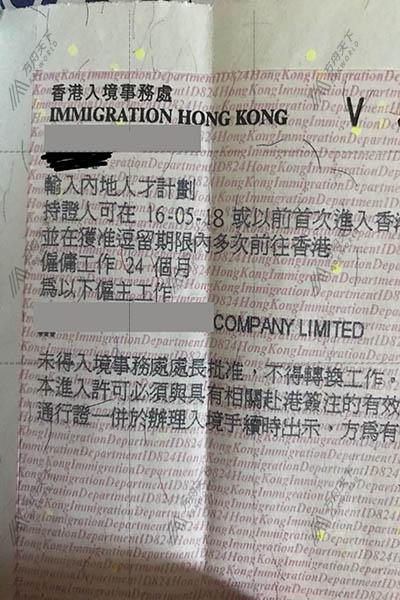 香港入境事務處
IMMIGRATION HONG KONG
V
輸入內地人才計劃
持證人可在 16-05-18 或以前首次進入香港
並在獲准逗留期限內多次前往香港
僱傭工作 24 個月
為以下僱主工作
COMPANY LIMITED
未得入境事務處處長批准，不得轉換工作。
本進入許可必須與具有相關赴港簽注的有效
通行證一併於辦理入境手續時出示，方為有